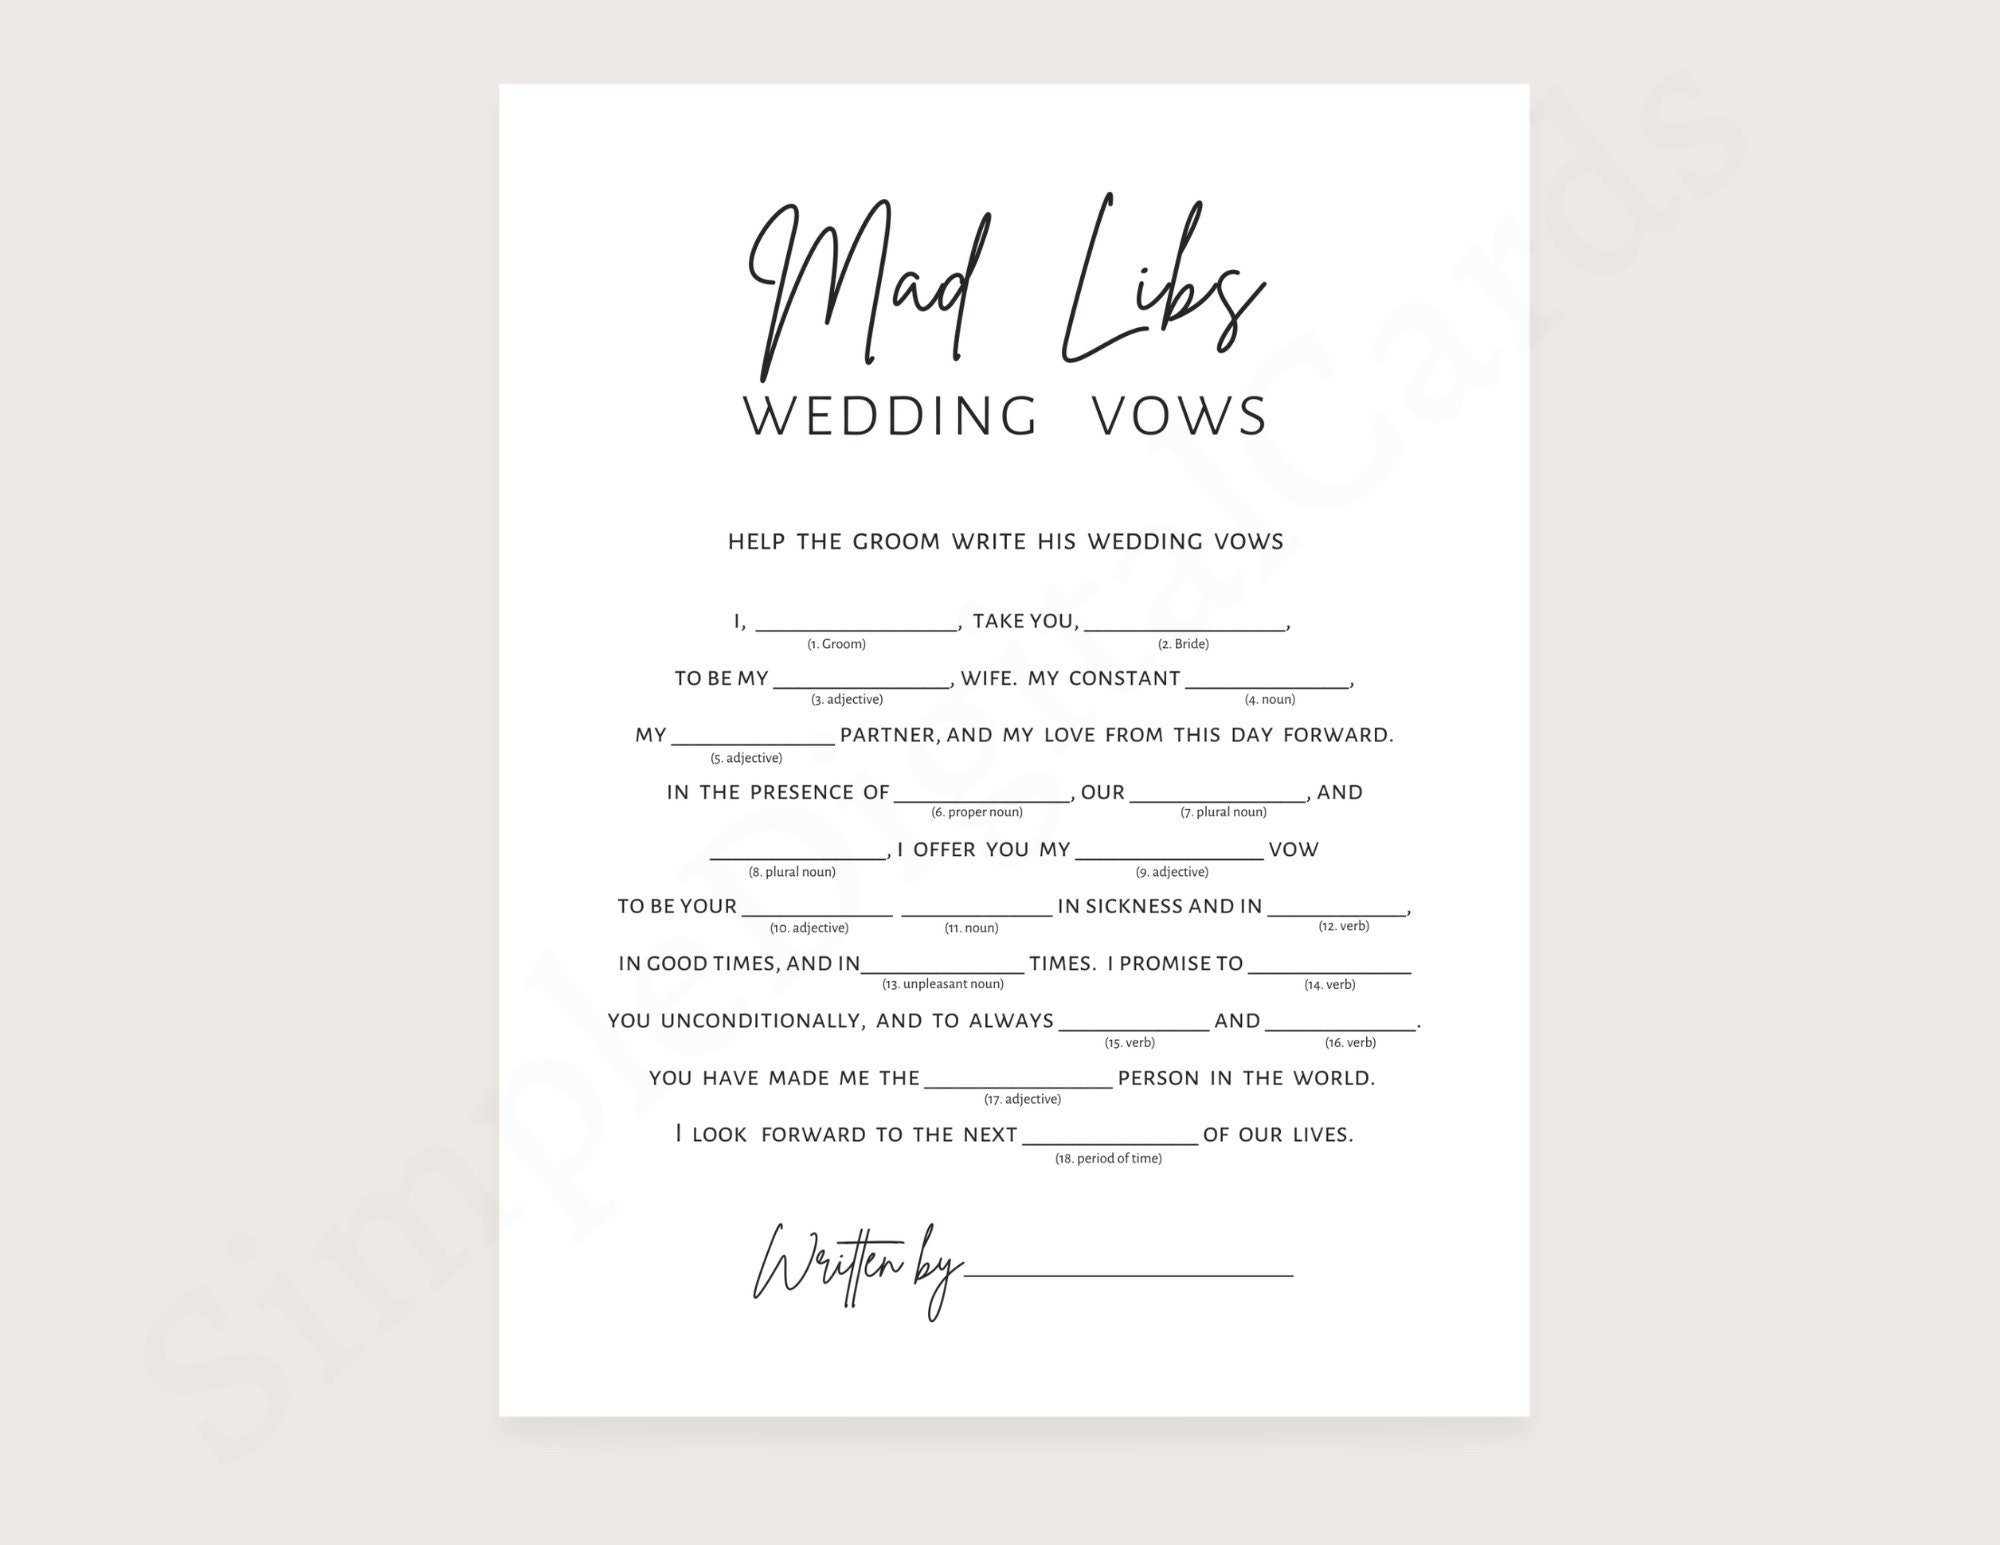 Mad Libs
WEDDING VOWS
HELP THE GROOM WRITE HIS WEDDING VOWS
I, ____________, TAKE YOU, ____________,
(1. Groom) (2. Bride)
TO BE MY ____________, WIFE. MY CONSTANT ____________,
(3. adjective) (4. noun)
MY ____________ PARTNER, AND MY LOVE FROM THIS DAY FORWARD.
(5. adjective)
IN THE PRESENCE OF ____________, OUR ____________, AND
(6. proper noun) (7. plural noun)
____________, I OFFER YOU MY ____________ VOW
(8. plural noun) (9. adjective)
TO BE YOUR ____________ ____________ IN SICKNESS AND IN ____________,
(10. adjective) (11. noun) (12. verb)
IN GOOD TIMES, AND IN ____________ TIMES. I PROMISE TO ____________
(13. unpleasant noun) (14. verb)
YOU UNCONDITIONALLY, AND TO ALWAYS ____________ AND ____________.
(15. verb) (16. verb)
YOU HAVE MADE ME THE ____________ PERSON IN THE WORLD.
(17. adjective)
I LOOK FORWARD TO THE NEXT ____________ OF OUR LIVES.
(18. period of time)
Written by ____________
SimpleDigitalCards